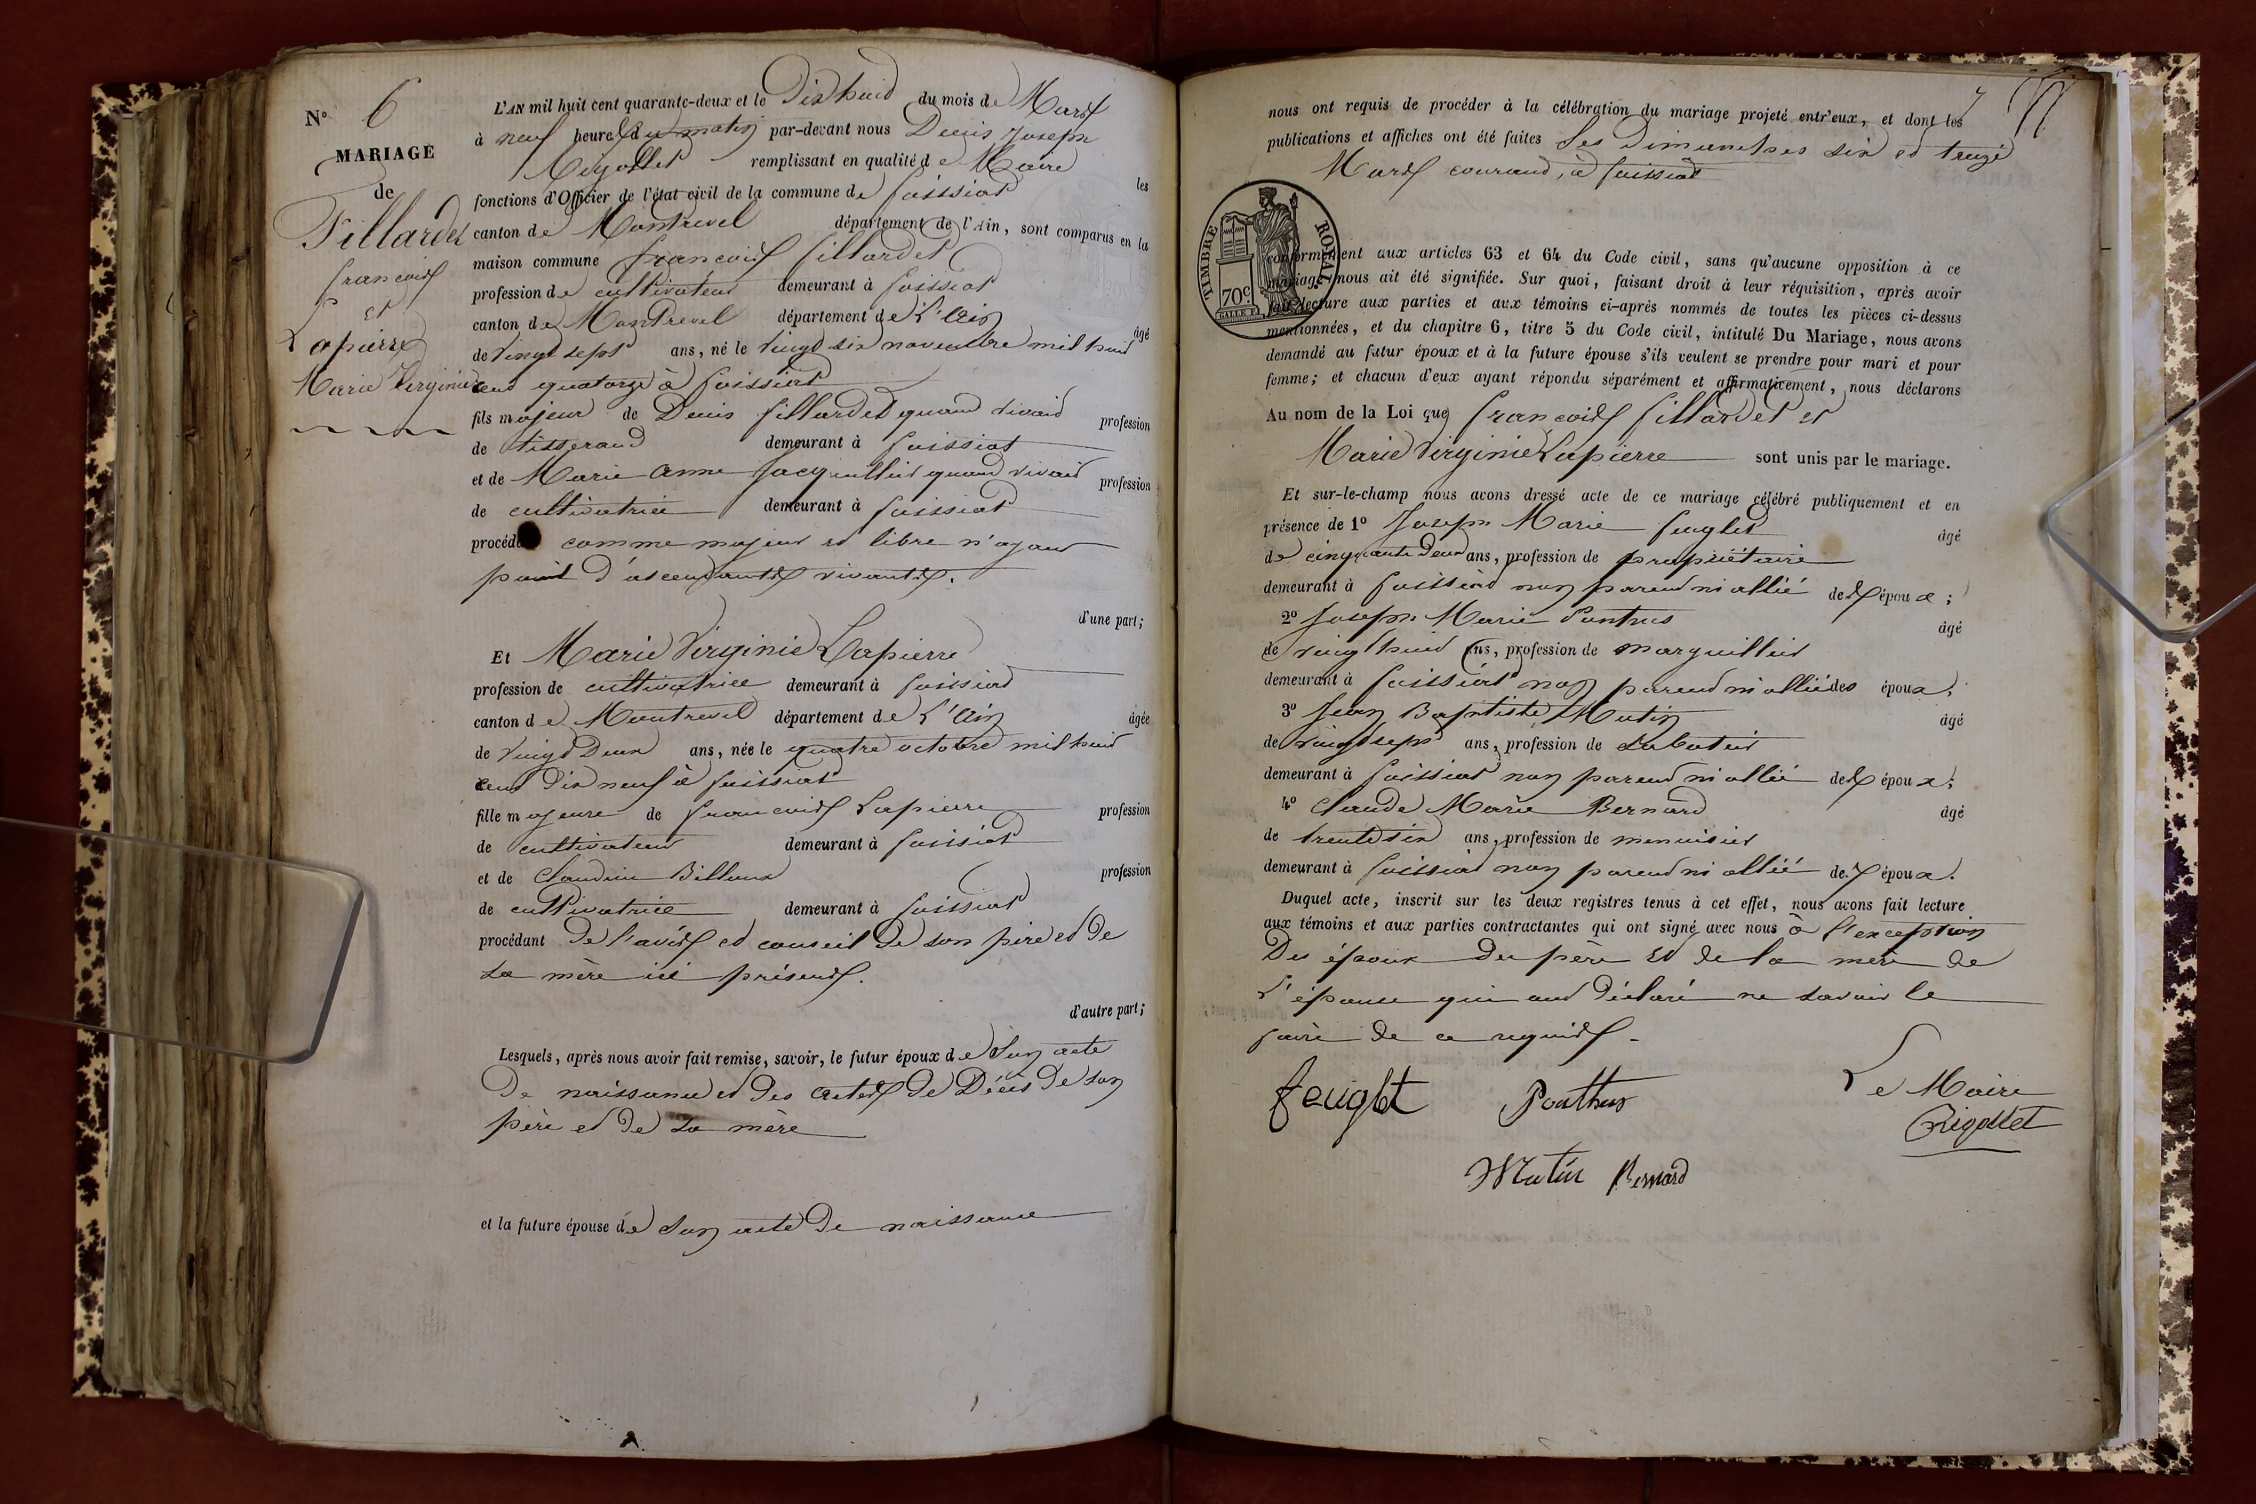 N° 6
MARIAGE
de
Fillardet
francois
Et
Lapierre
Marie Virginie
L'AN mil huit cent quarante-deux et le Dix huit du mois de Mars
à neuf heures du matin par-devant nous Denis Joseph
Rigollet remplissant en qualité de Maire les
fonctions d'Officier de l'état civil de la commune de foissiat
canton de Montrevel département de l'Ain, sont comparus en la
maison commune francois fillardet
profession de cultivateur demeurant à foissiat
canton de Montrevel département de L'Ain âgé
de vingt sept ans, né le vingt six novembre mil huit
cent quatorze à foissiat
fils majeur de Denis fillardet quand vivait profession
de tisserand demeurant à foissiat
et de Marie Anne Jacquillet quand vivait profession
de cultivatrice demeurant à foissiat
procédant comme majeur et libre n'ayant
point d'ascendants vivants.
d'une part;
Et Marie Virginie Lapierre
profession de cultivatrice demeurant à foissiat
canton de Montrevel département de L'Ain âgée
de vingt Deux ans, née le quatre octobre mil huit
cent Dix neuf à foissiat
fille majeure de francois Lapierre profession
de cultivateur demeurant à foissiat
et de Claudine Billoux profession
de cultivatrice demeurant à foissiat
procédant De l'avis et conseil De son père et De
sa mère ici présents.
d'autre part;
Lesquels, après nous avoir fait remise, savoir, le futur époux de Son acte
De naissance et Des actes De Décès De son
père et De sa mère
et la future épouse de Son acte De naissance
7
nous ont requis de procéder à la célébration du mariage projeté entr'eux, et dont les
publications et affiches ont été faites Les Dimanches six et treize
Mars courant, à foissiat
TIMBRE ROYAL
70 c.
conformément aux articles 63 et 64 du Code civil, sans qu'aucune opposition à ce
mariage nous ait été signifiée. Sur quoi, faisant droit à leur réquisition, après avoir
fait lecture aux parties et aux témoins ci-après nommés de toutes les pièces ci-dessus
mentionnées, et du chapitre 6, titre 5 du Code civil, intitulé Du Mariage, nous avons
demandé au futur époux et à la future épouse s'ils veulent se prendre pour mari et pour
femme; et chacun d'eux ayant répondu séparément et affirmativement, nous déclarons
Au nom de la Loi que francois fillardet et
Marie Virginie Lapierre sont unis par le mariage.
Et sur-le-champ nous avons dressé acte de ce mariage célébré publiquement et en
présence de 1° Joseph Marie feuglet âgé
de cinquante Deux ans, profession de propriétaire
demeurant à foissiat non parent ni allié des époux;
2° Joseph Marie Ponthus âgé
de vingt huit ans, profession de marguillier
demeurant à foissiat non parent ni allié des époux;
3° Jean Baptiste Mutin âgé
de vingt sept ans, profession de
demeurant à foissiat non parent ni allié des époux;
4° Claude Marie Bernard âgé
de trente six ans, profession de menuisier
demeurant à foissiat non parent ni allié des époux.
Duquel acte, inscrit sur les deux registres tenus à cet effet, nous avons fait lecture
aux témoins et aux parties contractantes qui ont signé avec nous à l'exception
Des époux Du père Et de la mère De
L'épouse qui ont Déclaré ne savoir le
faire De ce requis.
feuglet Ponthus Le Maire
Rigollet
Mutin Bernard